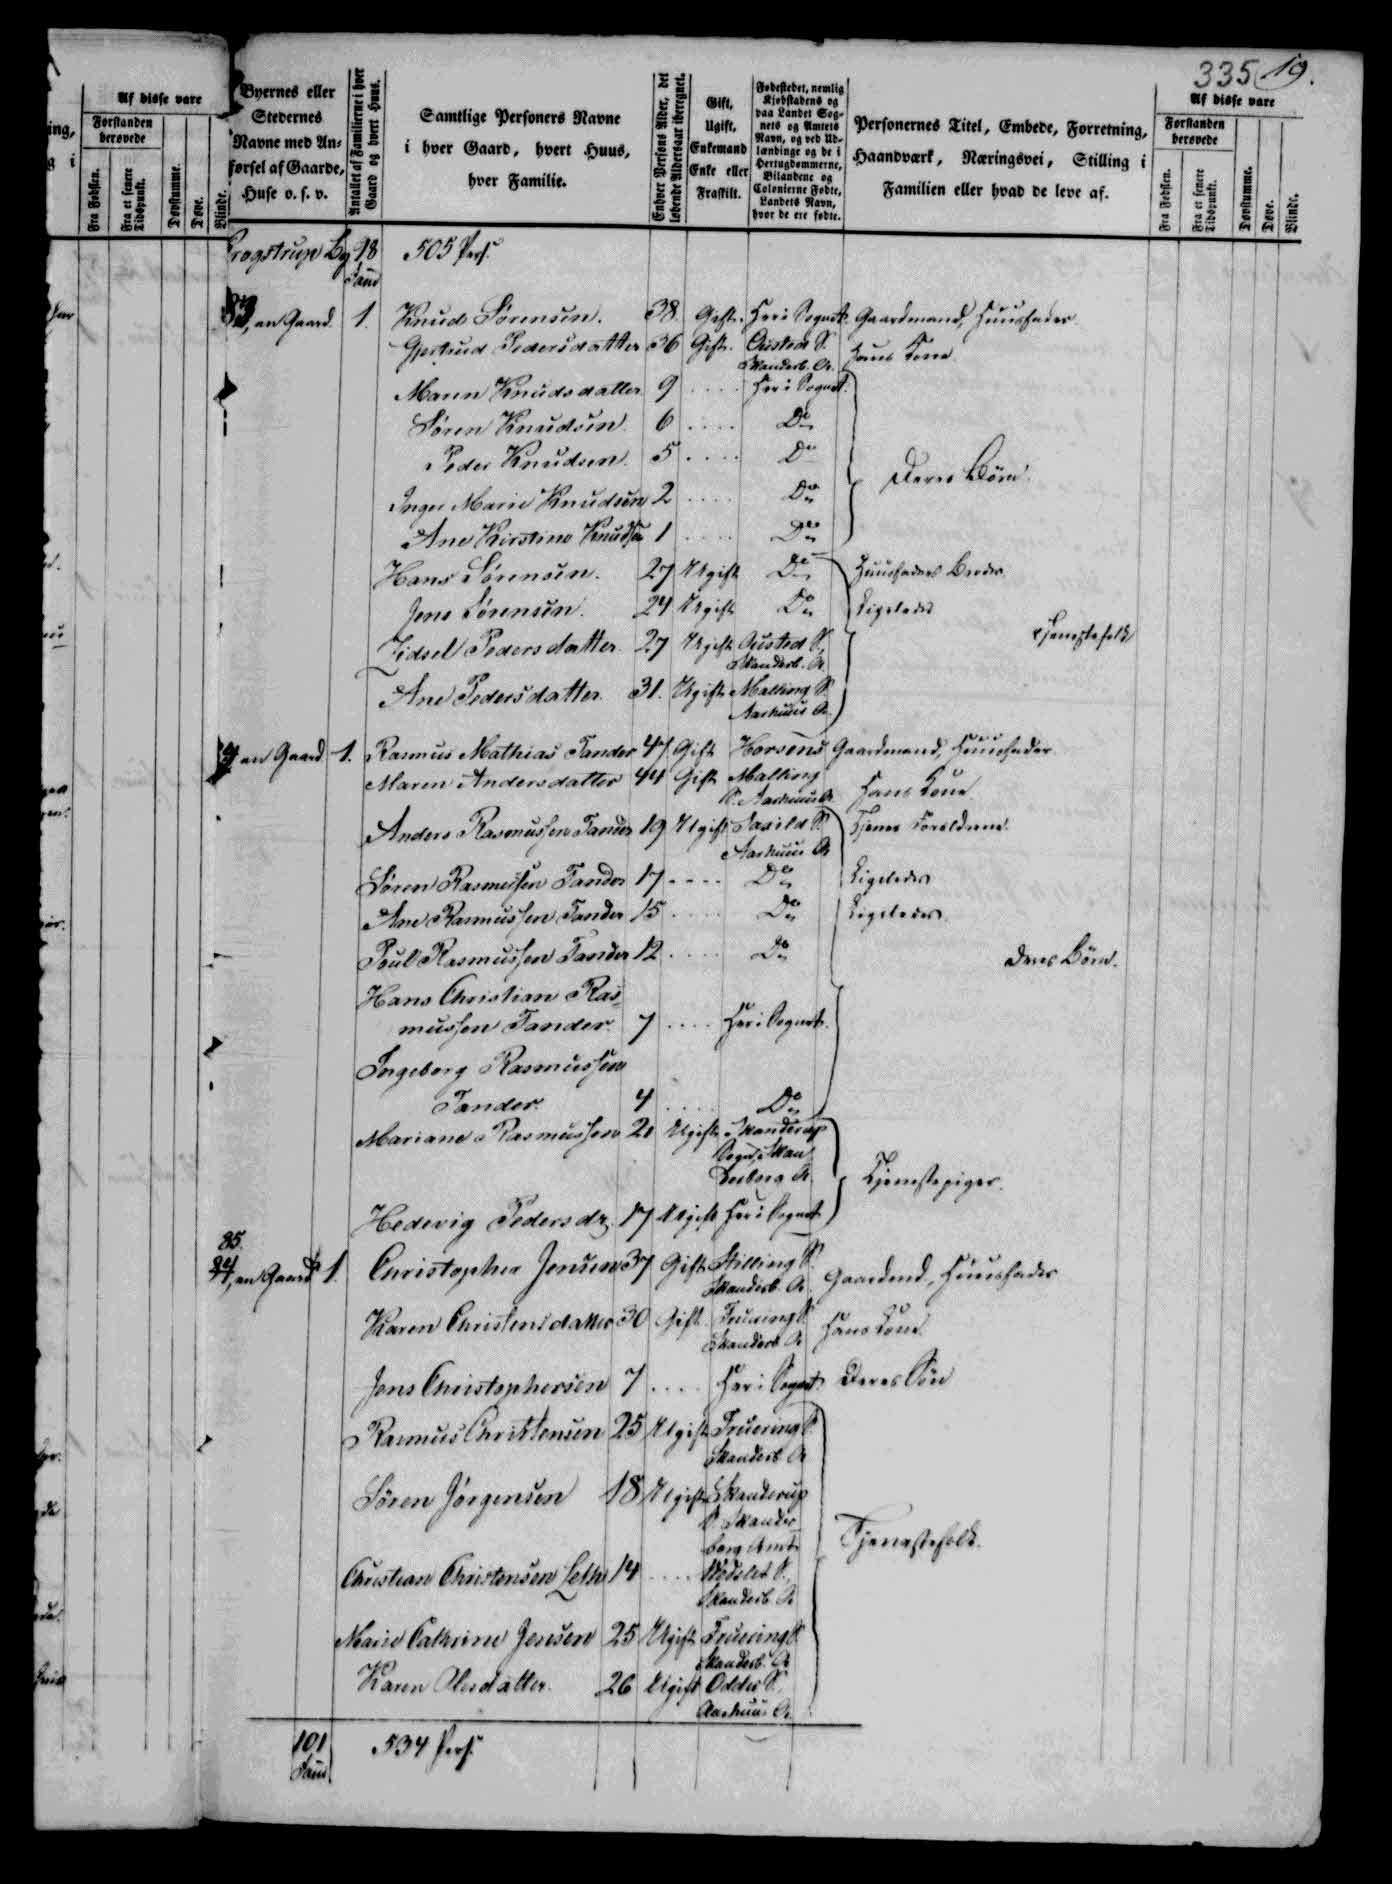 335 19.
Af disse vare
Forstanden berøvede
Fra Fødslen.
Fra et senere Tidspunkt.
Døvstumme.
Døve.
Blinde.
Byernes eller Stedernes Navne med Anførsel af Gaarde, Huse o. s. v.
Antallet af Familierne i hver Gaard og hvert Huus.
Samtlige Personers Navne i hver Gaard, hvert Huus, hver Familie.
Enhver Persons Alder, det løbende Aldersaar iberegnet.
Gift, Ugift, Enkemand Enke eller Fraskilt.
Fødestedet, nemlig Kjøbstadens og paa Landet Sognets og Amtets Navn, og ved Udlændinge og de i Hertugdømmerne, Bilandene og Colonierne Fødte, Landets Navn, hvor de ere fødte.
Personernes Titel, Embede, Forretning, Haandværk, Næringsvei, Stilling i Familien eller hvad de leve af.
Af disse vare
Forstanden berøvede
Fra Fødslen.
Fra et senere Tidspunkt.
Døvstumme.
Døve.
Blinde.
By 98 505 Pers.
Fam
en Gaard 1. Knud Sørensen. 38 Gift. Her i Sognet. Gaardmand, Huusfader
Gjertrud Pedersdatter 36 Gift. Ousted S. Hans Kone
Skanderb. A.
Maren Knudsdatter 9 .... Her i Sognet.
Søren Knudsen 6 .... Do
Peder Knudsen. 5 .... Do
Deres Børn.
Inger Marie Knudsen 2 .... Do
Ane Kirstine Knudsen 1 .... Do
Hans Sørensen. 27 Ugift Do Huusfaders Broder
Jens Sørensen. 24 Ugift Do Ligeledes
Tjenestefolk
Zidsel Pedersdatter 27 Ugift Ousted S.
Skanderb. A.
Ane Pedersdatter 31. Ugift Malling S.
Aarhuus A.
en Gaard 1. Rasmus Mathias Tander 47 Gift Horsens Gaardmand, Huusfader
Maren Andersdatter 44 Gift Malling
S. Aarhuus A. Hans Kone
Anders Rasmussen Tander 19 Ugift Saxild S. Tjener Forældrene.
Aarhuus A.
Søren Rasmussen Tander 17 .... Do Ligeledes
Ane Rasmussen Tander 15 .... Do Ligeledes
Poul Rasmussen Tander 12 .... Do
Deres Børn.
Hans Christian Ras-
mussen Tander 7 .... Her i Sognet.
Ingeborg Rasmussen
Tander 4 .... Do
Mariane Rasmussen 20 Ugift Skanderup
Sogn, Skan
derborg A.
Tjenestepiger.
Hedevig Pedersdr. 17 Ugift Her i Sognet
85.
84, en Gaard 1. Christopher Jensen 37 Gift Stilling S.
Skanderb. A. Gaardmd., Huusfader
Karen Christensdatter 30 Gift Fruering S.
Skanderb. A. Hans Kone
Jens Christophersen 7 .... Her i Sognet Deres Søn
Rasmus Christensen 25 Ugift Fruering S.
Skanderb. A.
Søren Jørgensen 18 Ugift Skanderup
S. Skander
borg Amt
Tjenestefolk.
Christian Christensen Leth 14 .... S.
Skanderb. A.
Marie Cathrine Jensen 25 Ugift Fruering S.
Skanderb. A.
Karen Olesdatter. 26 Ugift Odder S.
Aarhuus A.
101 534 Pers.
Fam